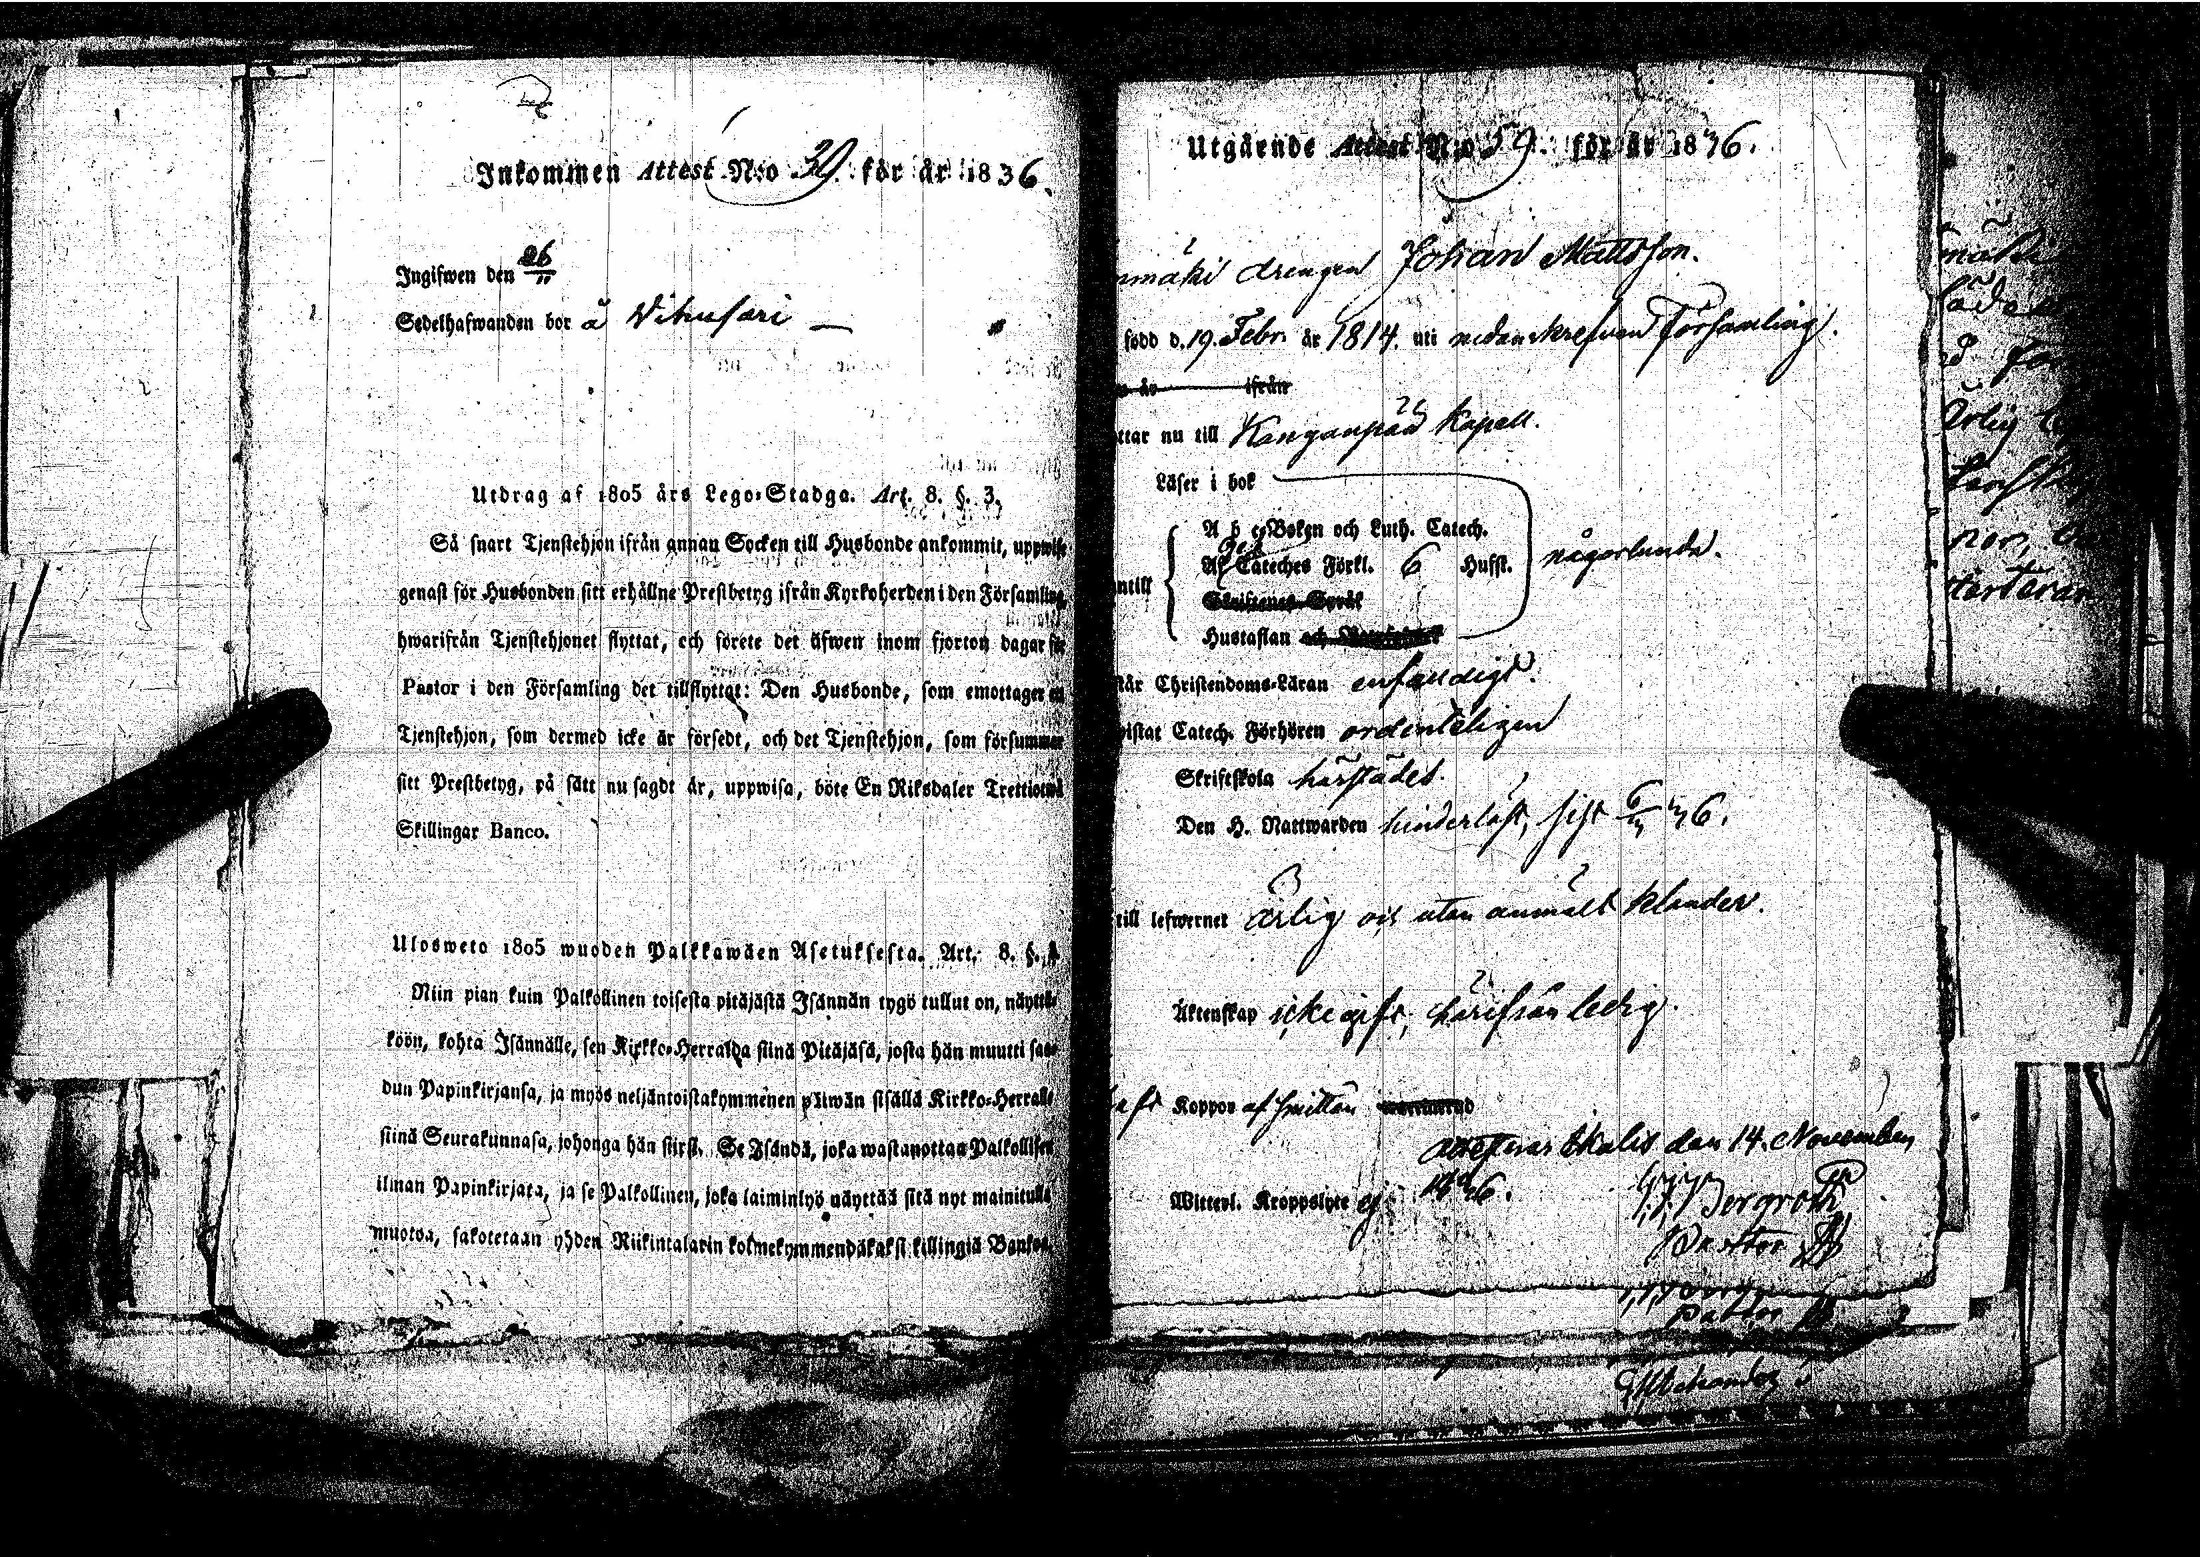 Inkommen Attest N:o 39. för år 1836.
Ingifwen den 26/11
Sedelhafwanden bor å Wihusari
Utdrag af 1805 års Lego-Stadga. Art. 8. §. 3.
Så snart Tjenstehjon ifrån annan Socken till Husbonde ankommit, uppwise
genast för Husbonden sitt erhållne Prestbetyg ifrån Kyrkoherden i den Församling,
hwarifrån Tjenstehjonet flyttat, och förete det äfwen inom fjorton dagar för
Pastor i den Församling det tillflyttat: Den Husbonde, som emottager en
Tjenstehjon, som dermed icke är försedt, och det Tjenstehjon, som försummar
sitt Prestbetyg, på sätt nu sagdt är, uppwisa, böte En Riksdaler Trettiotwå
Skillingar Banco.
Ulosweto 1805 wuoden Palkkawäen Asetuksesta. Art. 8. §.
Niin pian kuin Palkollinen toisesta pitäjästä Isännän tygö tullut on, näyttä-
köön, kohta Isännälle, sen Kirkko-Herralda siinä Pitäjäsä, josta hän muutti saa-
dun Papinkirjansa, ja myös neljäntoistakymmenen päiwän sisällä Kirkko-Herralle
siinä Seurakunnasa, johonga hän siirsi. Se Isändä, joka wastanottaa Palkollisen
ilman Papinkirjata, ja se Palkollinen, joka laiminlyö näyttää sitä nyt mainitulla
muotoa, sakotetaan yhden Riikintalarin kolmekymmendäkaksi killingiä Bankos.
Utgående Attest N:o 59. för år 1836.
mäki drengen Johan Mattsson.
född d. 19. Febr. år 1814. uti nedanskrefwen Församling.
år ifrån
ttar nu till Kanganpää Kapell.
Läser i bok
A b c-Boken och Luth. Catech.
Cateches Förkl. 6 Hufst. någorlunda.
ntill
Skriftenes Språk
Hustaflan och
tår Christendoms-Läran enfaldigt.
wistat Catech. Förhören ordenteligen
Skriftskola härstädes.
Den H. Nattwarden hinderlöst, sist 6/ 36.
till lefwernet ärlig och utan anmält klander.
Äktenskap icke gift, härifrån ledig.
haft Koppor af smittan
attesteras Ikalis den 14. November
1836.
Witterl. Kroppslyte ej
Bergroth
Pastor
Pastor